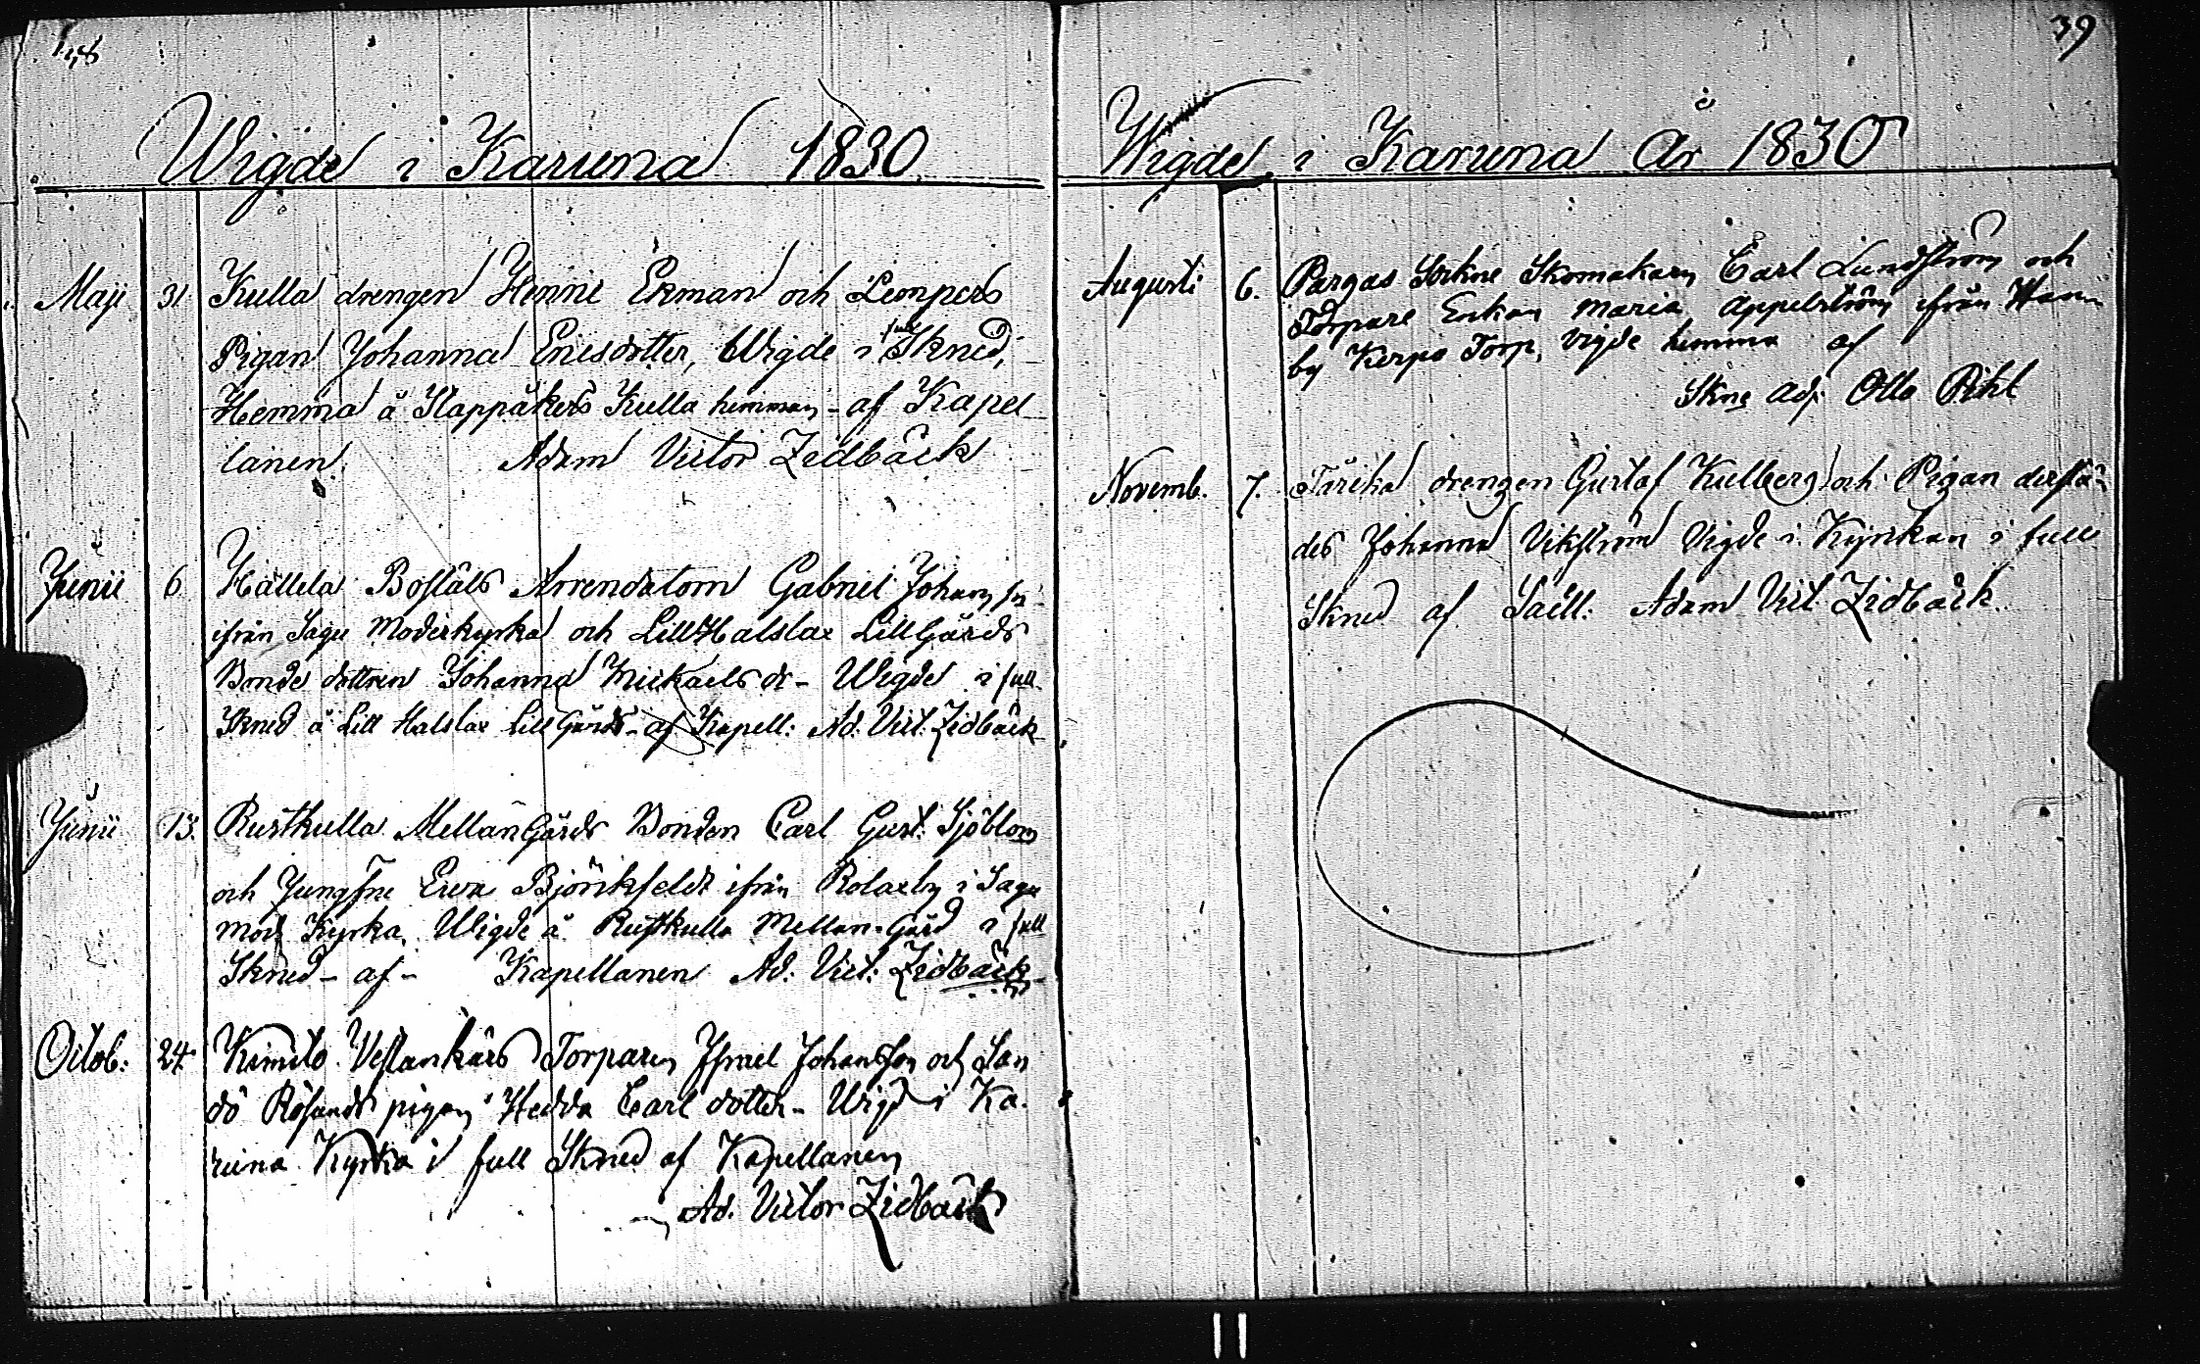 38
Wigde i Karuna 1830.
Maji 31 Kulla drengen Henric Ekman och Lempers
Pigan Johanna Ericsdotter, Wigde i full Skned,
Hemma å Klappåkers Kulla hemman - af Kapel
lanen. Adam Victor Zidbäck
Junii 6 Bostäls Arrendatorn Gabriel Johans sn
ifrån Sagu Moderkyrka och Lill Halslax LillGårds
Bonde dottren Johanna Mickaels dr - Wigde i full
Skned å Lill Halslax Lill Gårds - af Kapell: Ad: Vict: Zidbäck
Junii 13. Rustkulla MellanGårds Bonden Carl Gust. Sjöblom
och Jungfru Ewa Björkfeldt ifrån Rolaxby i Sagu
mod Kyrka, Wigde å Rustkulla Mellan-Gård i full
Skned - af - Kapellanen Ad: Vict: Zidbäck
Octob: 24 Kimito Vestankärs Torparen Israel Johansson och San
dö pigan Hedda Carl dotter - Wigd i Ka-
runa Kyrka i full Skned af Kapellanen
Ad. Victor Zidbäck
39
Wigde i Karuna År 1830
Augusti 6. Pargas Sockne Skomakaren Carl Lundström och
Torpare Enkan Maria Appelström ifrån
by Torp, Vigde hemma af
Skne Adj: Otto Pihl
Novemb. 7. drengen Gustaf Kullberg och Pigan derstä-
des Johanna Vikström Vigde i Kyrkan i full
Skned af Adam Vict Zidbäck.